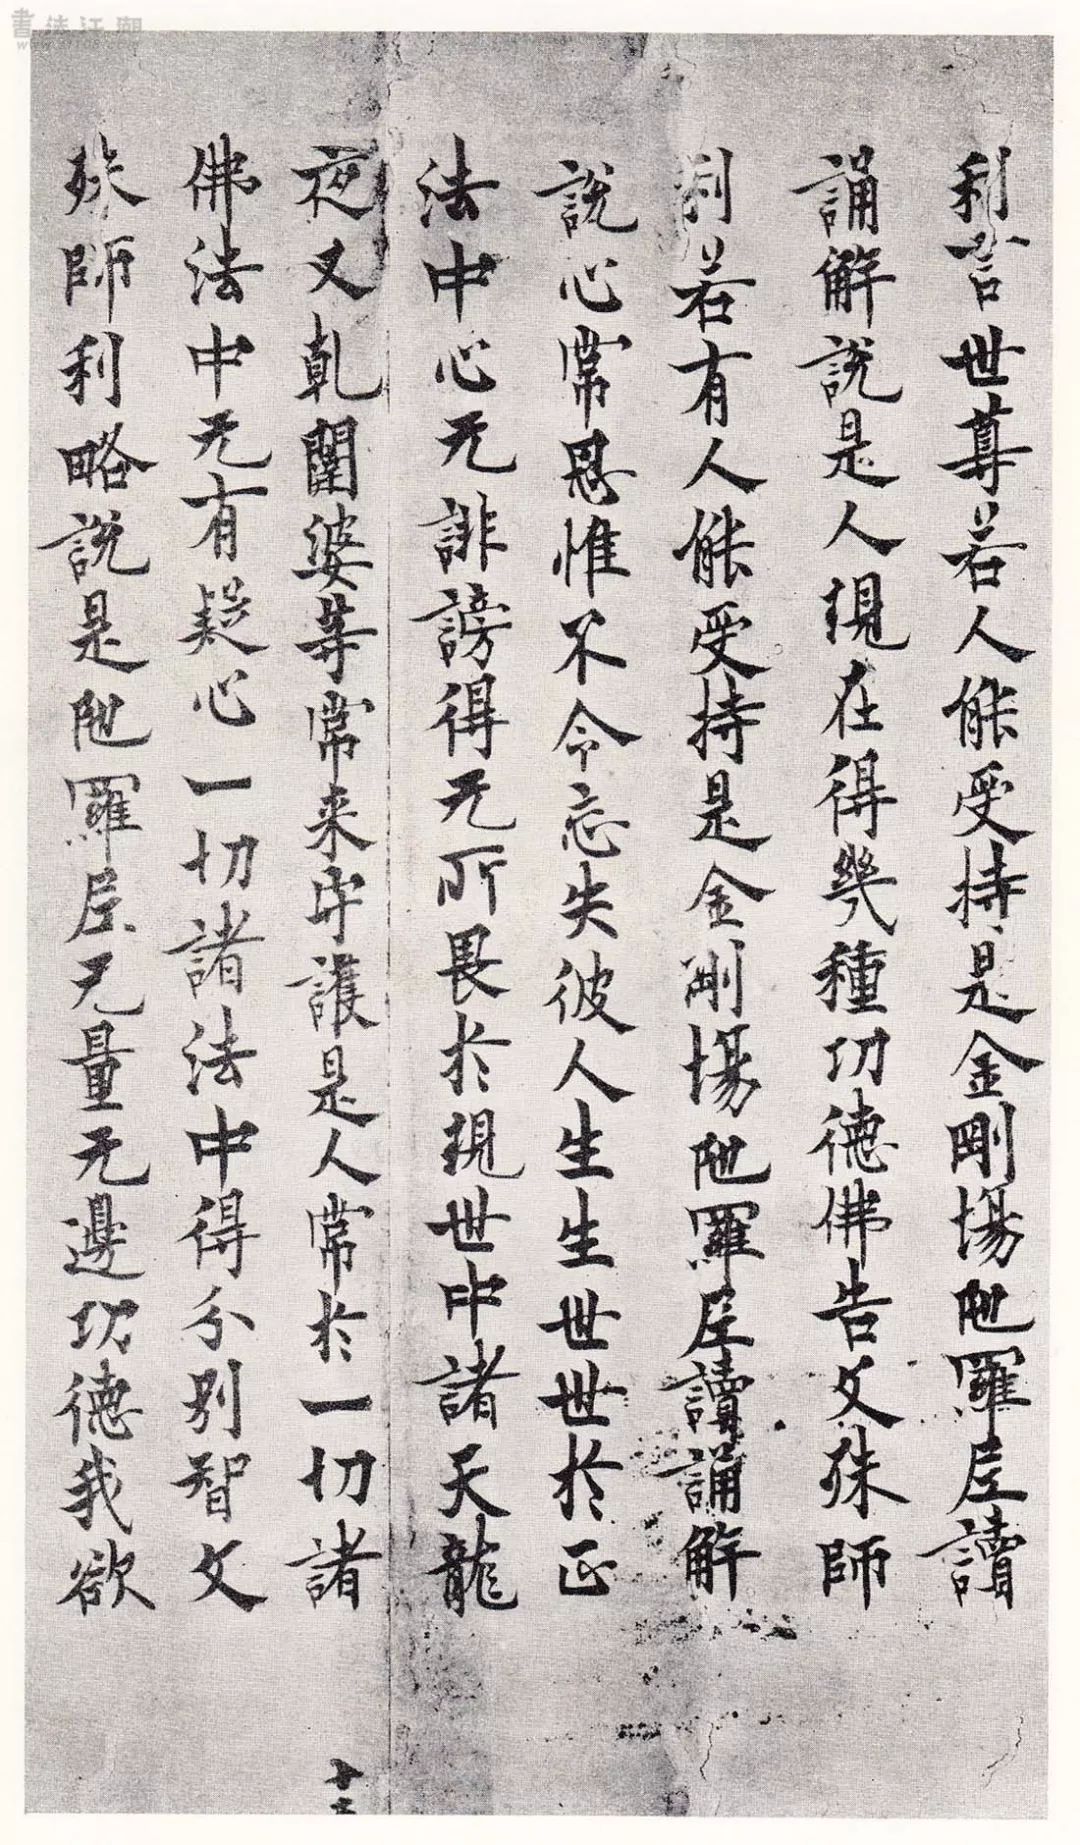 書法江湖
利言世尊若人能受持是金剛場陁羅尼讀
誦解説是人現在得幾種功德佛告文殊師
利若有人能受持是金剛場陁羅尼讀誦解
説心常思惟不令忘失彼人生生世世於正
法中心无誹謗得无所畏於現世中諸天龍
夜叉乹闥婆等常来守護是人常於一切諸
佛法中无有疑心一切諸法中得分別智文
殊師利略説是陁羅尼无量无邊功德我欲
十